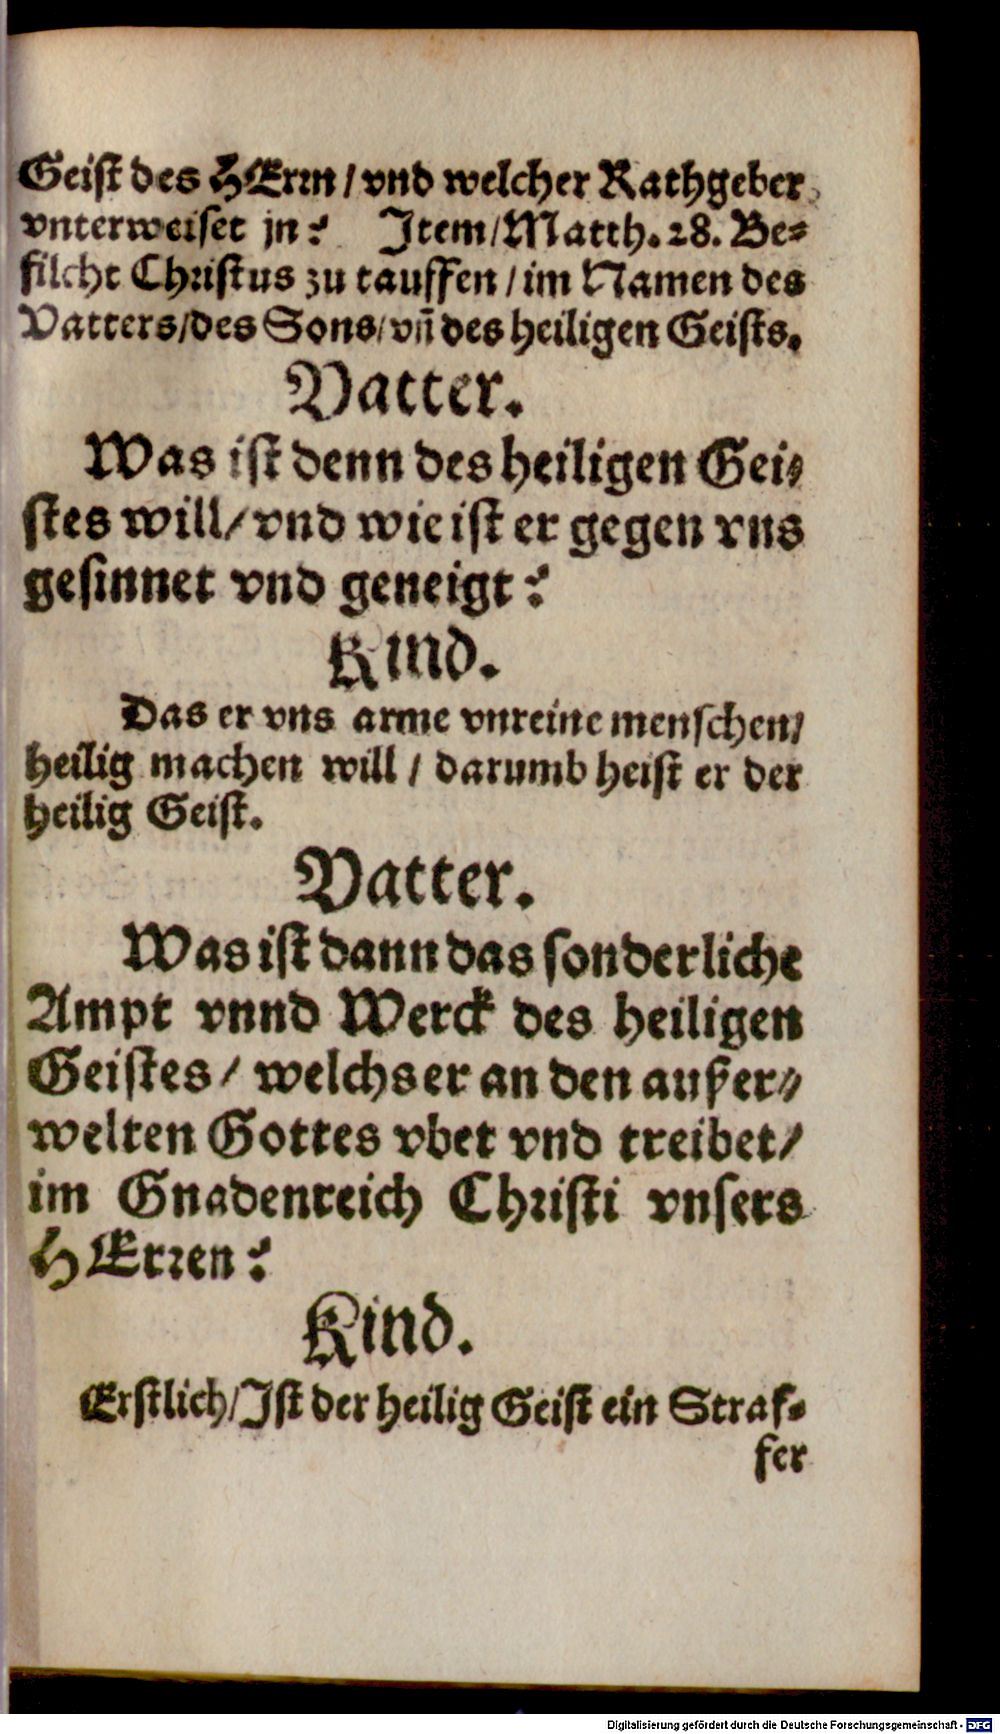 Geist des HErrn / vnd welcher Rathgeber
vnterweiset jn? Item / Matth. 28. Be-
filcht Christus zu tauffen / im Namen des
Vatters / des Sons / vn̄ des heiligen Geists.
Vatter.
Was ist denn des heiligen Gei-
stes will / vnd wie ist er gegen vns
gesinnet vnd geneigt?
Kind.
Das er vns arme vnreine menschen /
heilig machen will / darumb heist er der
heilig Geist.
Vatter.
Was ist dann das sonderliche
Ampt vnnd Werck des heiligen
Geistes / welchs er an den außer-
welten Gottes vbet vnd treibet /
im Gnadenreich Christi vnsers
HErren?
Kind.
Erstlich / Ist der heilig Geist ein Straf-
fer
Digitalisierung gefördert durch die Deutsche Forschungsgemeinschaft - DFG